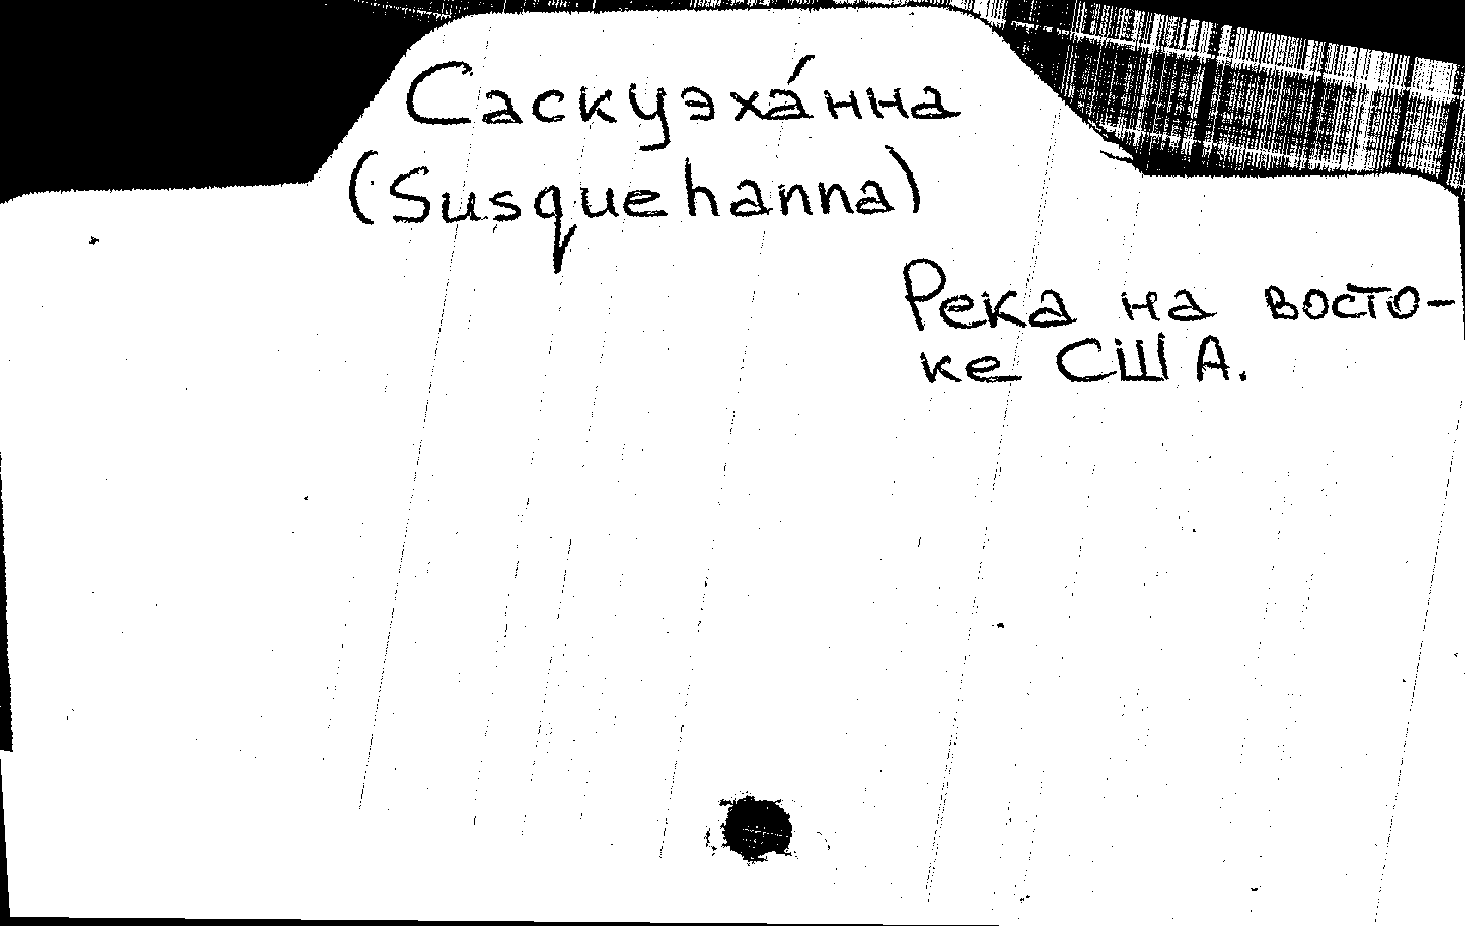 Саскуэха́нна
(Susquehanna)
Река на восто-
ке США.